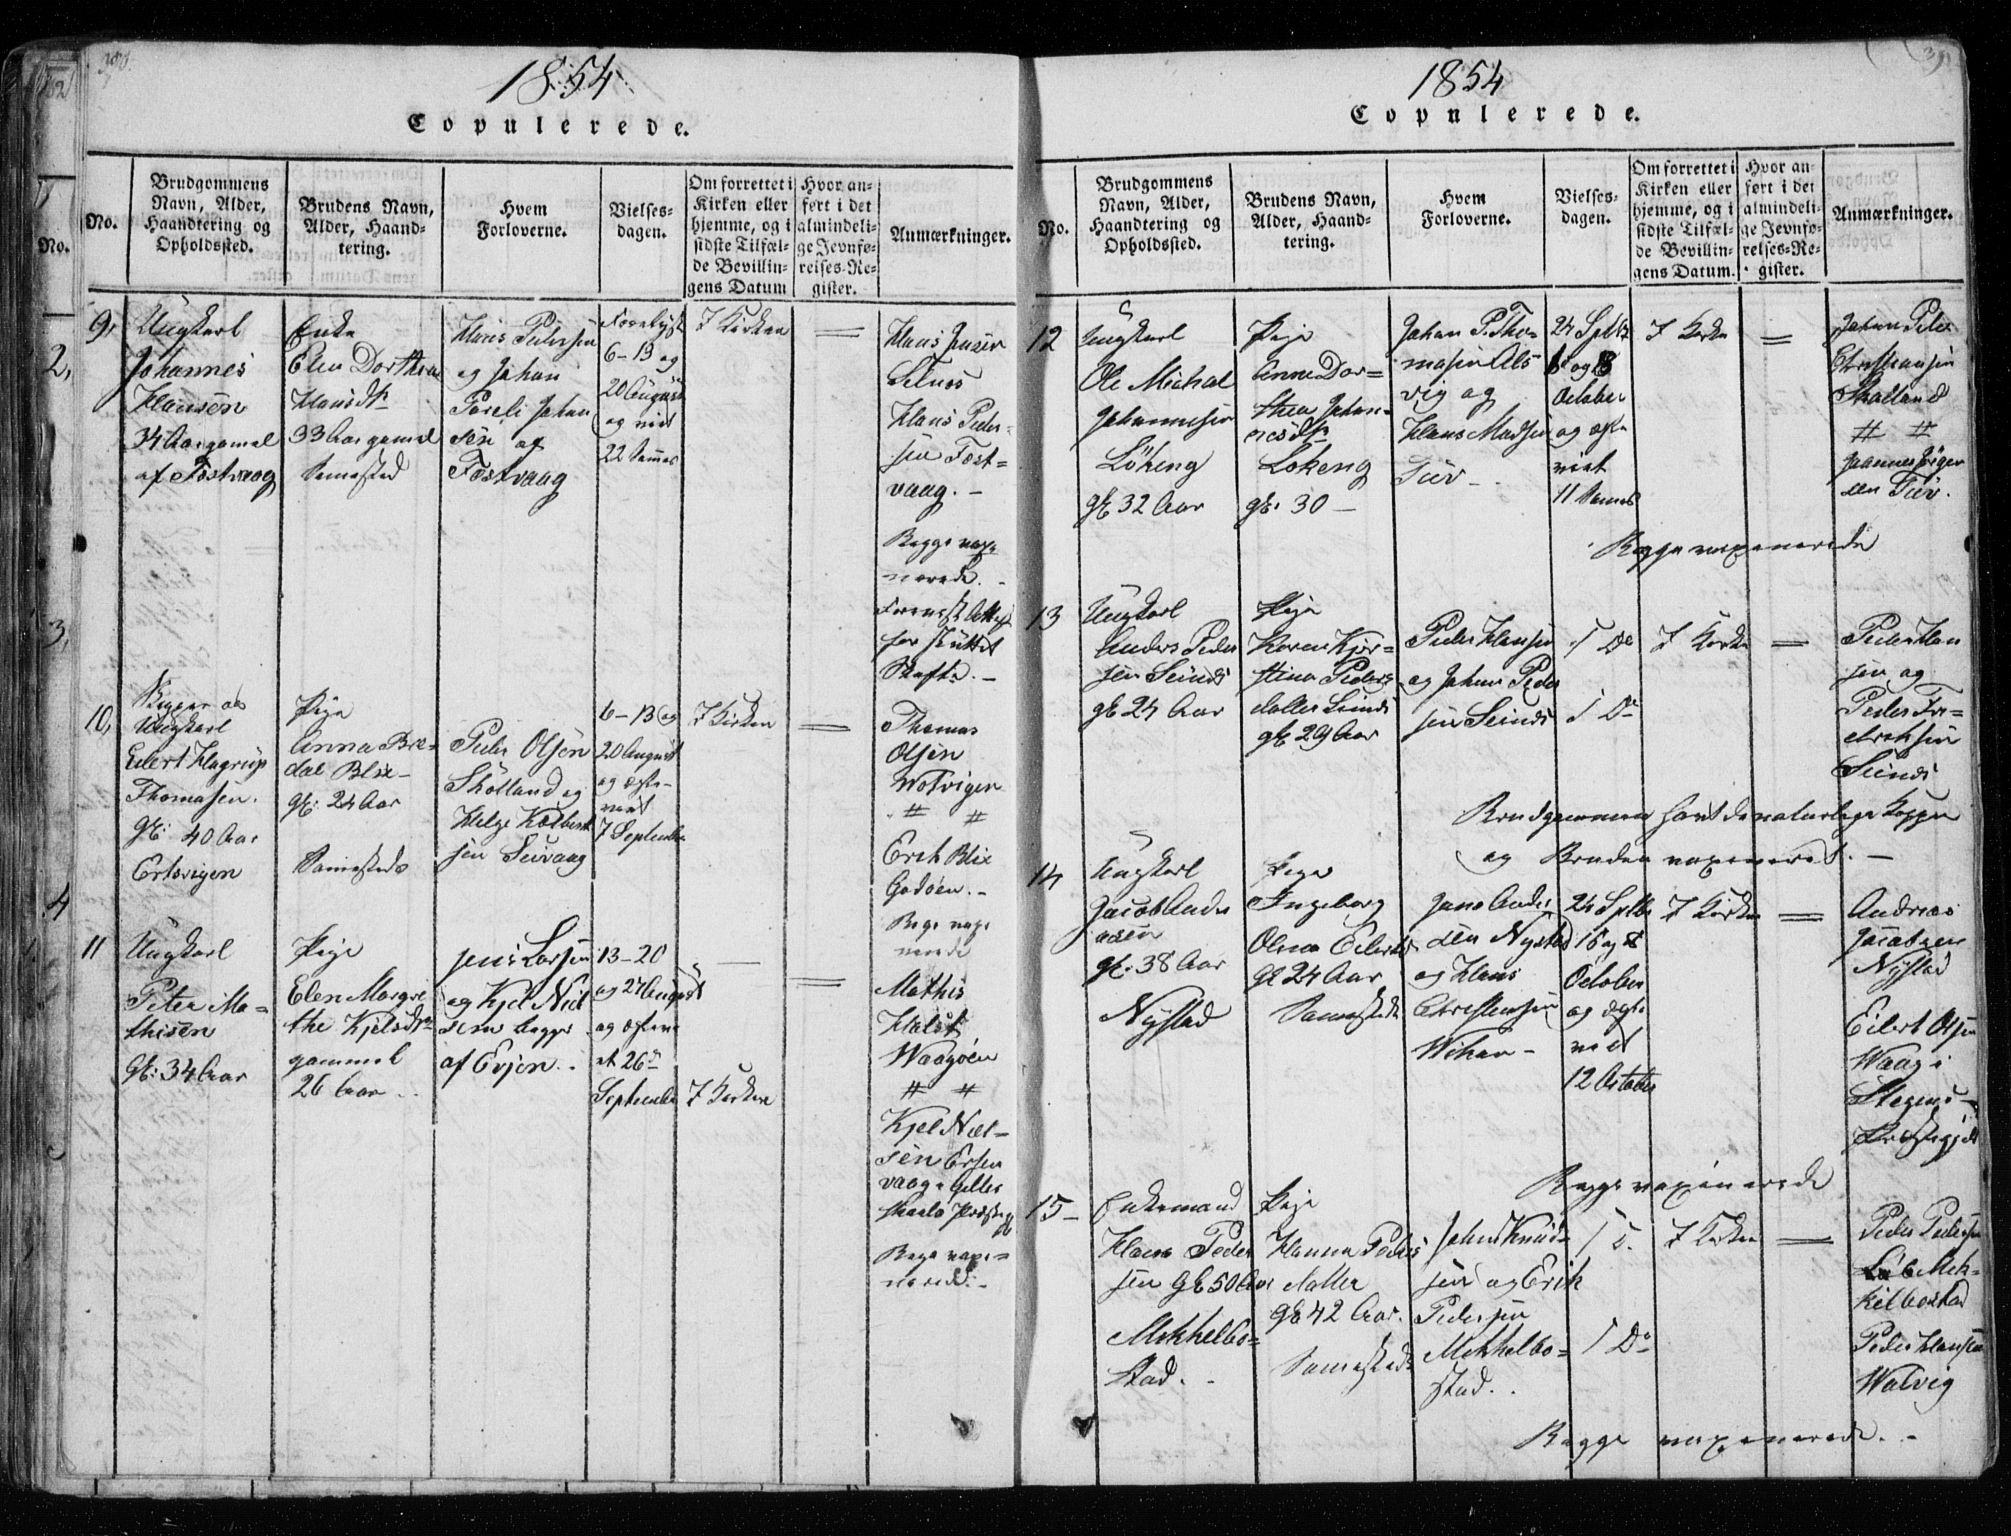 390.
1854
Copulerede.
No.
Brudgommens
Navn, Alder,
Haandtering og
Opholdssted.
Brudens Navn,
Alder, Haand-
tering.
Hvem
Forloverne.
Vielses-
dagen.
Om forrettet i
Kirken eller
hjemme, og i
sidste Tilfæl-
de Bevillin-
gens Datum
Hvor an-
ført i det
almindeli-
ge Jevnfø-
relses-Re-
gister.
Anmærkninger.
9,
Ungkarl
Johannes
Hansen
34 Aar gamel
af Festvaag
Enke
Elen Dorthea
Hansdtr
33 Aar gamel
Samested
Hans Pedersen
og Johan
Poreli Johan
sen af
Festvaag
6-13 og
20 August
og viet
22 Sammes
I Kirken
=
Hans
Hans Peder-
sen Fest-
vaag. -
Begge vaxi-
nerede. -
for skuttet
Skifte. -
10,
Ungkarl
Eilert Hagrup
Thomasen.
gl: 40 Aar
Pige
Anna Bre-
dal Blix-
gl: 24 Aar
Samesteds
Peder Olsen
og
Helge
sen Seivaag
6-13 og
20 August
og efter-
viet
7 September
I Kirken
=
Thomas
Olsen
# #
Erik Blix
Godøen. -
Bege vaxi
nerede
11
Ungkarl
Peter Ma-
thisen
Gl: 34 Aar
Pige
Elen Margre
the Kjelsdtr
gammel
26 Aar
Jens Larsen
og Kjel Niel
sen begge
af Evjen.
13-20
og 27 August
og
et 26de
September
I Kirken
=
Mathis
Halst
Waagøen
# #
Kjel Niel-
sen
vaag i Gilles
kaals Præsteg
Bege vaxi-
nerede. -
1854
Copulerede.
No.
Brudgommens
Navn, Alder,
Haandtering og
Opholdssted.
Brudens Navn,
Alder, Haand-
tering.
Hvem
Forloverne.
Vielses-
dagen.
Om forrettet i
Kirken eller
hjemme, og i
sidste Tilfæl-
de Bevillin-
gens Datum.
Hvor an-
ført i det
almindeli-
ge Jevnfø-
relses-Re-
gister.
Anmærkninger.
12
Ungkarl
Ole Michal
Johannesen
Løkeng
gl 32 Aar
Pige
Anne Dor-
thea Johan-
nesdtr
Løkeng
gl: 30 -
Johan P. Tho-
masen Als
vig og
Hans Madsen
Tuv -
24 Septbr
1 og 8
October
og eft
viet
11 Sammes
I Kirke
=
Johan Peter
Christiansen
Skalland
# #
Johannes Jørgen
sen Tuv.
Begge vaxinerede
13
Ungkarl
Anders Peder
sen Seines
gl 24 Aar
Pige
Karen Kjer-
stina Peders
datter Seines
gl 29 Aar
Peder Hansen
og Johan Peder
sen Seines
I Do
I Do
I Kirken
=
Peder Han
sen og
Peder Fre-
driksen
Seines
Brudgommen havt de naturlige Kopper
og Bruden vaxineret. -
14
Ungkarl
Jacob Andre
asen
gl: 38 Aar
Nystad
Pige
Ingeborg
Olina Eilerts
gl 24 Aar
Samesteds
Jens Ander
sen Nystad
og Hans
Christensen
24 Septbr
1 og 8
October
og efter
viet
12 October
I Kirken
=
Andreas
Jacobsen
Nystad
Eilert Olsen
Waag i
Stegens-
Præstegjeld
Begge vaxinerede
15 -
Enkemand
Hans Peder
sen gl 50 Aar
Mekkelbo-
stad. -
Pige
Hanna Peders
datter
gl 42 Aar.
Samesteds
Johan Knud-
sen og Erik
Pedersen
Mekkelbo-
stad. .
I D.
I Do
I Kirken
=
Peder Pedersen
Mek-
kelbostad
Peder Hansen
Walvig
Begge vaxinerede. -